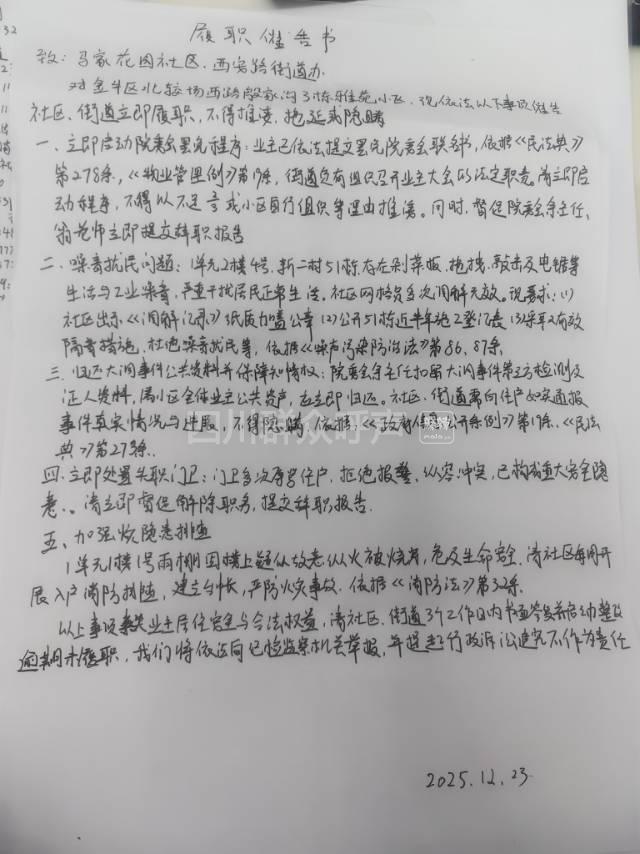 履职催告书
致：马家花园社区、西安路街道办
对金牛区北较场西路殷家沟3栋雅苑小区，现依法以下事项催告
社区、街道立即履职，不得推诿，拖延或隐瞒
一、立即启动院委会罢免程序：业主已依法提交罢免院委会联名书，依据《民法典》
第278条，《物业管理例》第19条，街道负有组织召开业主大会的法定职责。请立即启
动程序，不得以不足 或小区自行组织等理由推诿。同时，督促院委会余主任、
翁花师立即提交辞职报告
二、噪音扰民问题：1单元2楼4号，新二村51栋存在剁菜板、拖拽、敲击及电锯等
生活与工业噪音，严重干扰居民正常生活。社区网格员多次调解无效。现要求：(1)
社区出示《调解记录》纸质加盖公章 (2)公开51栋近半年施工登记表 (3)采取有效
隔音措施，杜绝噪音扰民等，依据《噪声污染防治法》第86、87条
三、归还大洞事件公共资料并保障知情权：院委会余主任扣留大洞事件第三方检测及
证人资料，属小区全体业主公共资产，应立即归还。社区、街道需向住户如实通报
事件真实情况与进取，不得隐瞒，依据：《政府信息公开条例》第19条、《民法
典》第273条.
四、立即处置失职门卫：门卫多次辱骂住户，拒绝报警，纵容冲突，已构成重大安全隐
患。请立即督促解除职务，提交辞职报告.
五、加强火灾隐患排查
1单元1楼1号雨棚因楼上疑似故意纵火被烧毁，危及生命安全，请社区每周开
展入户消防排查，建立台帐，严防火灾事故. 依据《消防法》第32条.
以上事项事关业主居住安全与合法权益，请社区、街道3个工作日内书面答复并启动整改
逾期未履职，我们将依法向纪检监察机关举报，并提起行政诉讼追究不作为责任
2025.12.23
四川群众呼声